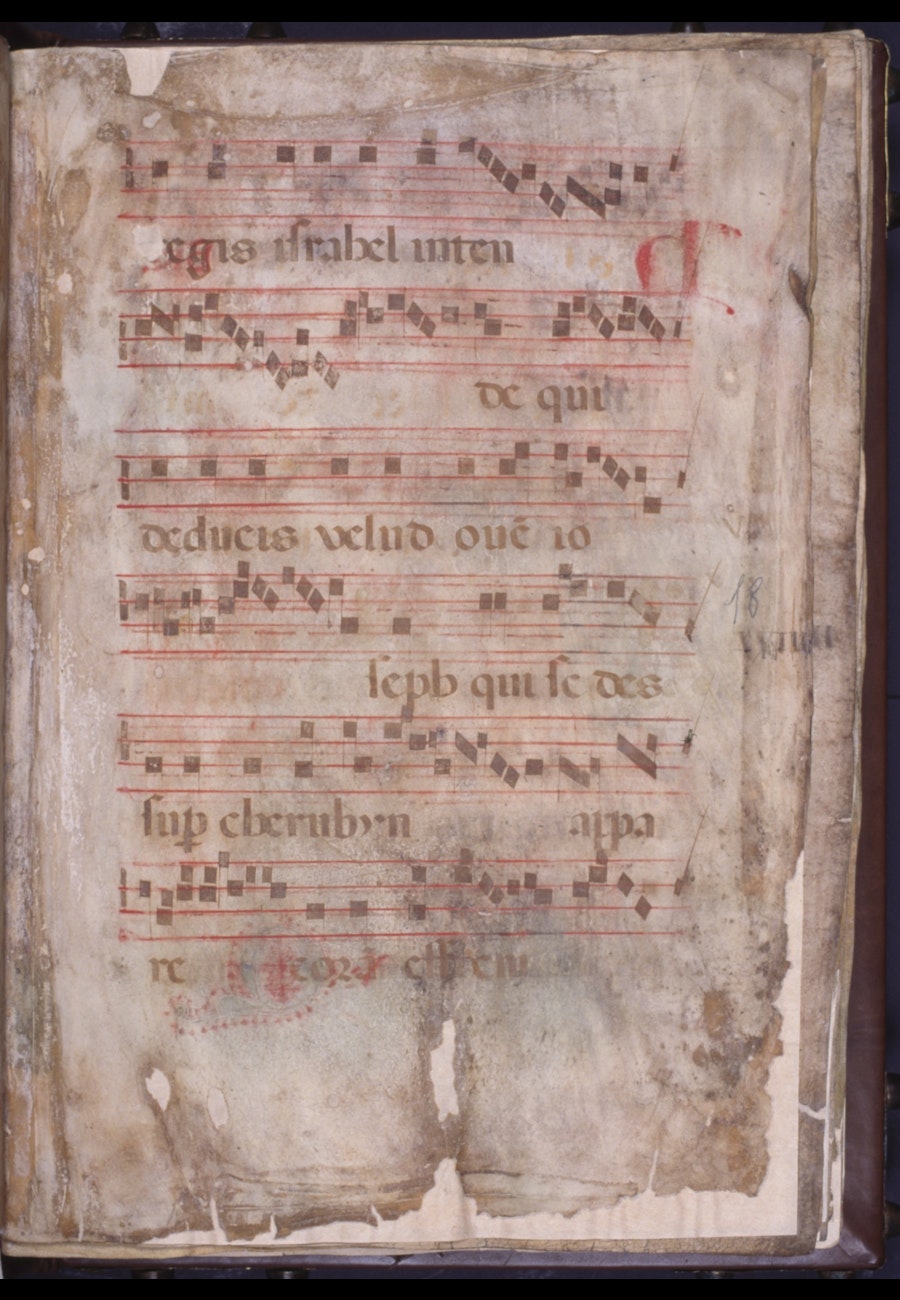 regis israhel inten
de qui
deducis velud ouē io
seph qui se des
sup cherubyn appa
re corā effren
18